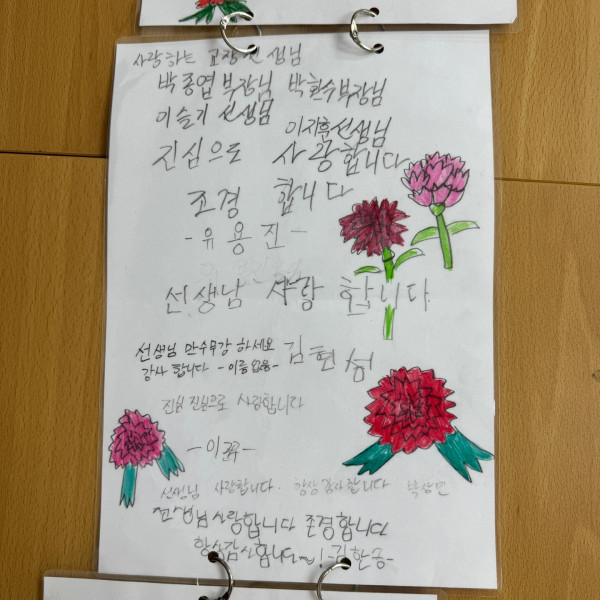 사랑하는 교장선생님
박종엽 부장님 박현수부장님
이슬기 선생님 이지훈선생님
진심으로 사랑합니다
조경 합니다
-유용진-
선생님 사랑 합니다
선생님 만수무강 하세요
감사 합니다 -이름없음-
김현섭
진짜 진심으로 사랑합니다
선생님 사랑합니다. 항상 감사합니다 박상면
선생님 사랑합니다 존경합니다
항상감사합니다~! -김한승-